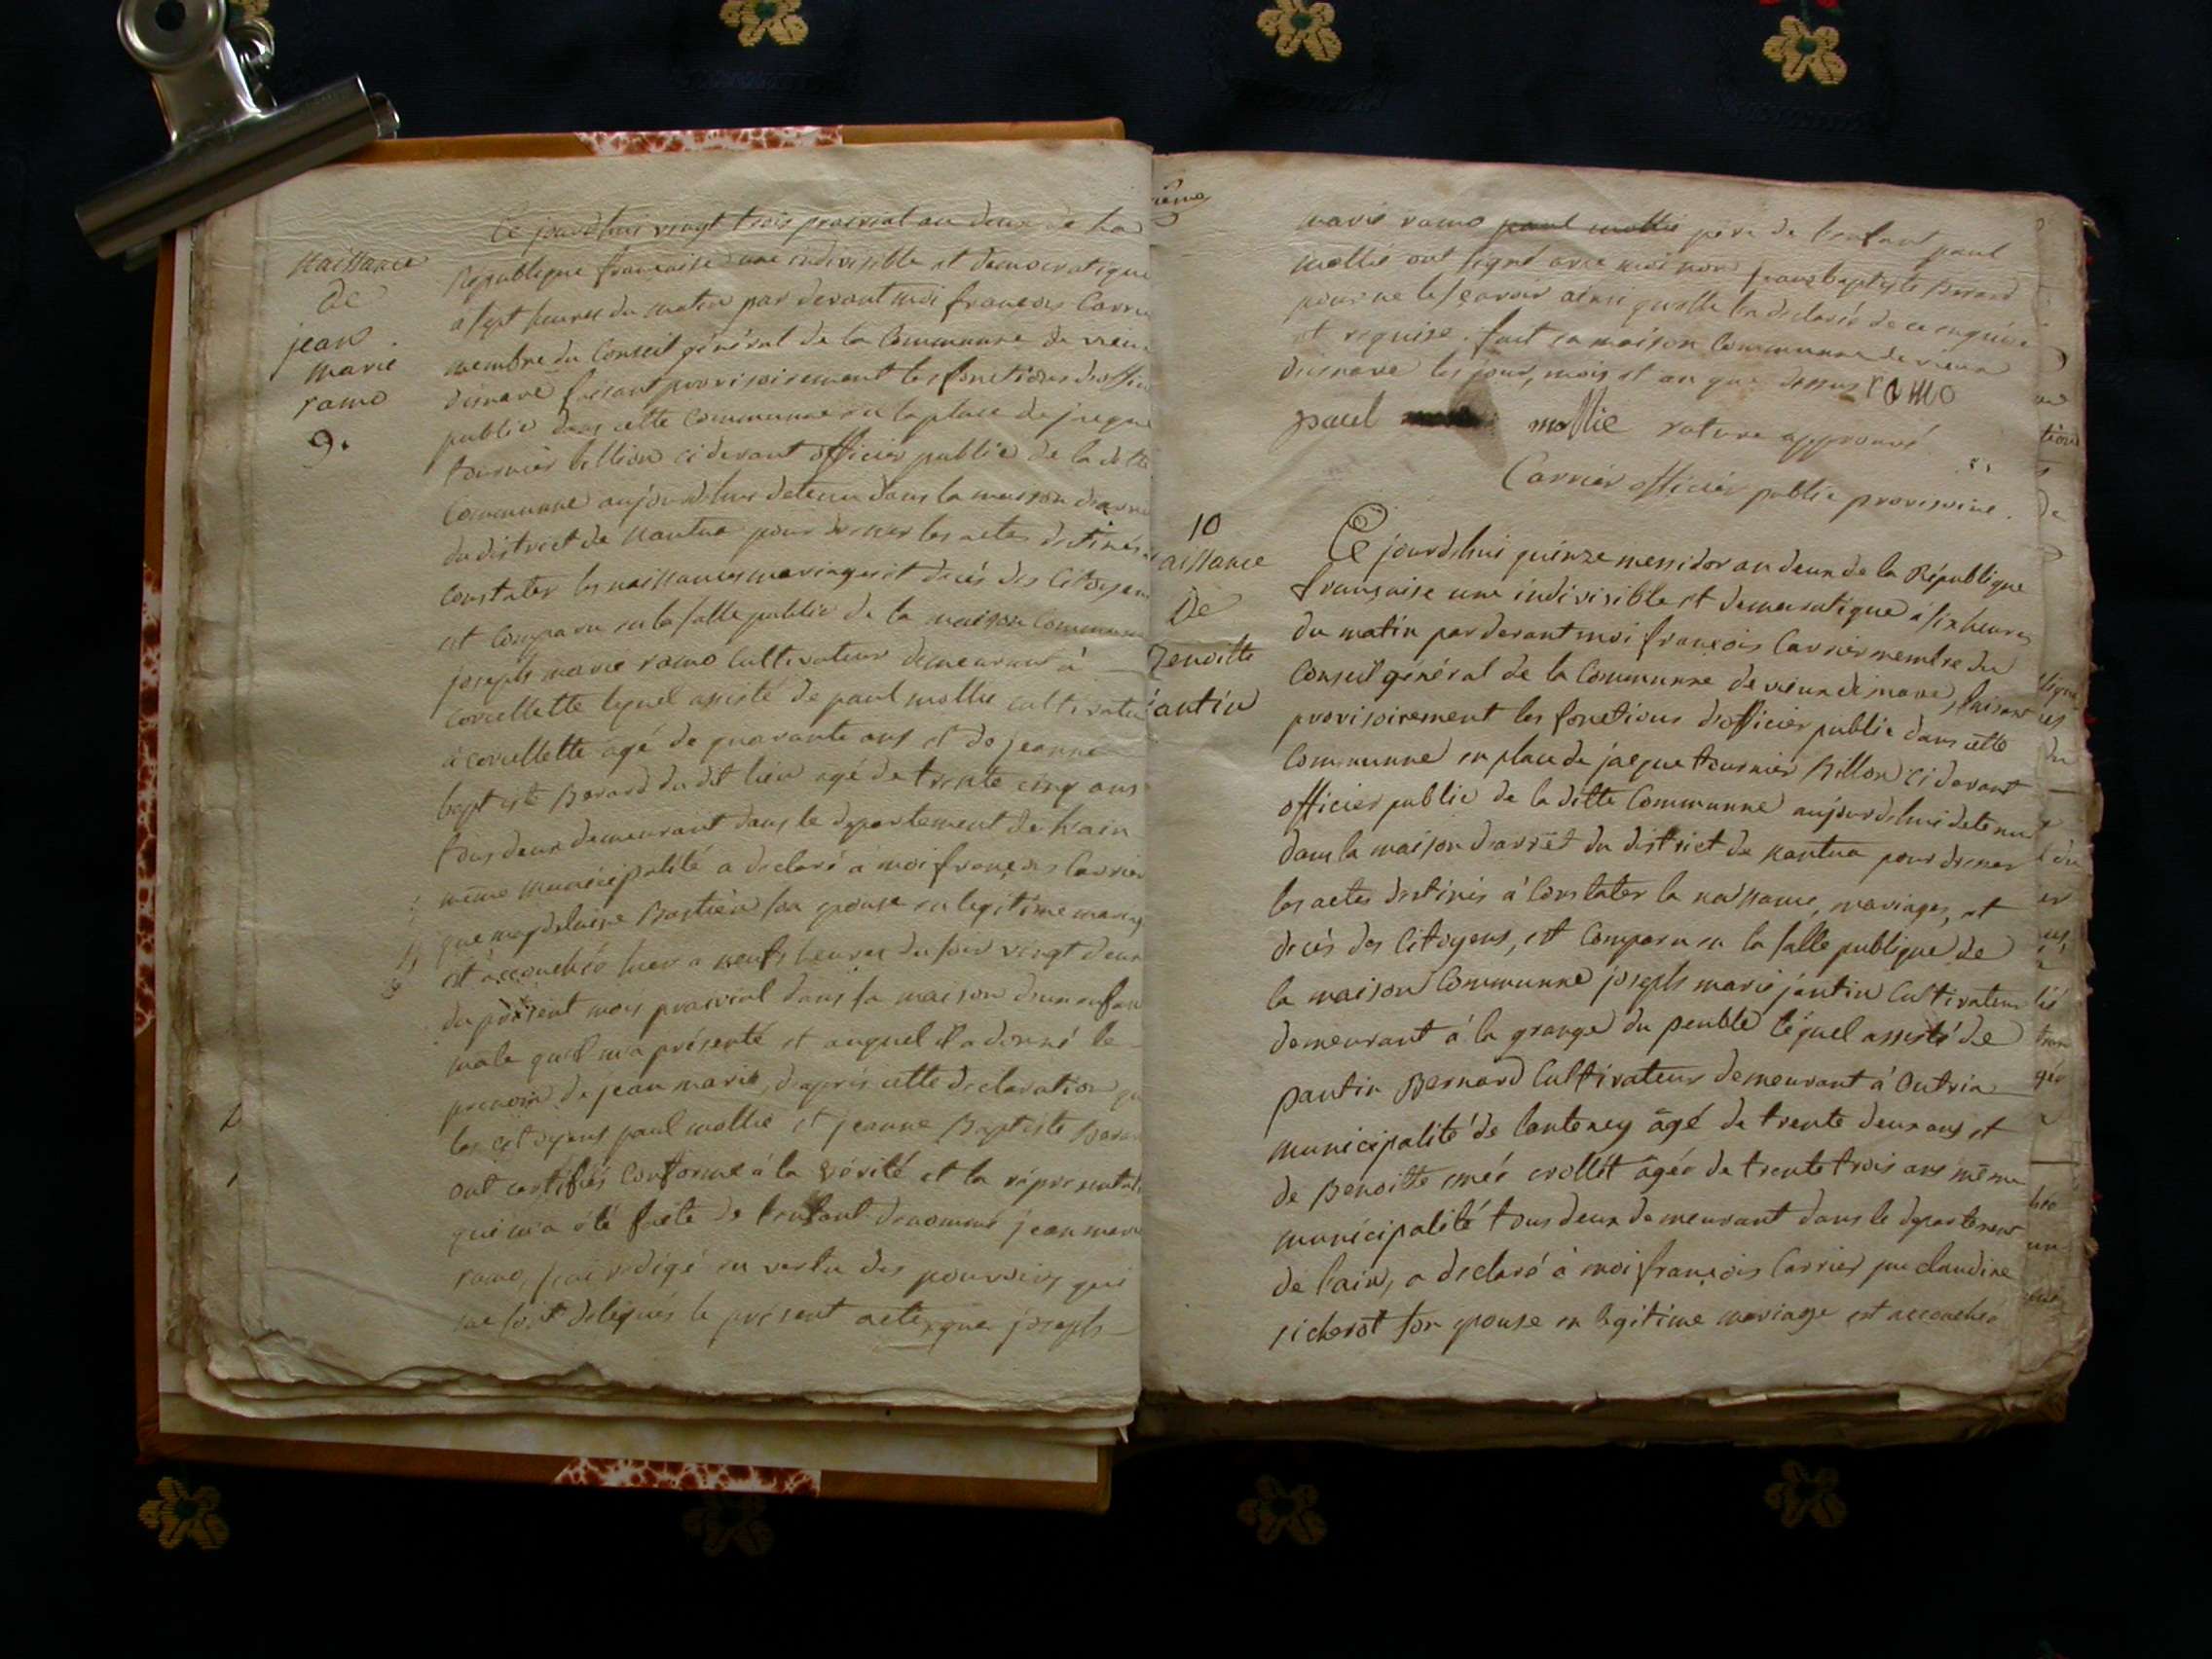 naissance
de
jean
marie
ramo
9.
Ce jourdhui vingt trois prairial an deux de la
République française une indivisible et democratique
a sept heures du matin par devant moi françois Carrie
membre du Conseil général de la Communne de vieu
disnave faisant provisoirement les fonctions d'offici
public dans cette Communne en la place de jacque
tournier billion ci devant officier public de la ditte
Communne aujourdhui detenu dans la maison d'arre
du district de Nantua pour dresser les actes destinés a
Constater les naissances mariages et decés des Citoyens
est Comparu en la salle public de la maison Communne
joseph marie ramo Cultivateur demeurant à
Corcellette lequel assisté de paul mollie cultivateu
à corcellette agé de quarante ans et de jeanne
baptiste Berard du dit lieu agé de trente cinq ans
tous deux demeurant dans le departement de l'ain
même municipalité a declaré a moi françois Carrier
que magdelaine Bastien son epouse en legitime mariag
est accouchée hier a neufs heures du soir vingt deux
du présent mois prairial dans sa maison d'un enfan
male qu'il m'a présenté et auquel il a donné le
prenom de jean marie, d'après cette declaration que
les citoyens paul mollie et jeanne Baptiste Berar
ont certifiés Conforme à la vérité et la représentati
qui m'a été faite de l'enfant denommé jean marie
ramo, j'ai redigé en vertu des pouvoirs qui
me sont delegués le présent acte, que joseph
marie ramo paul mollie père de l'enfant paul
mollie ont signé avec moi non jeanne baptiste Berard
pour ne le sçavoir ainsi quelle l'a declaré de ce enquise
et requise. fait en maison Communne de vieux
disnave les jour, mois et an que dessus ramo
paul mollie rature approuvé
Carrier officier public provisoire.
10
aissance
de
Benoitte
jantin
Ce jourdhui quinze messidor an deux de la République
française une indivisible et democratique à six heures
du matin par devant moi françois Carrier membre du
Conseil général de la Communne de vieux disnave, faisant
provisoirement les fonctions d'officier public dans cette
Communne en place de jacque tournier Billon ci devant
officier public de la ditte Communne aujourdhui detenu
dans la maison d'arrêt du district de Nantua pour dresser
les actes destinés à Constater la naissance, mariages, et
decès des Citoyens, est Comparu en la salle publique de
la maison Communne joseph marie jantin Cultivateur
demeurant à la grange du peuble lequel assisté de
pantin Bernard Cultivateur demeurant à Outria
municipalité de lanteney âgé de trente deux ans et
de Benoitte crollet âgée de trente trois ans même
municipalité tous deux demeurant dans le departement
de l'ain, a declaré à moi françois Carrier que claudine
sicherot son epouse en legitime mariage est accouchée